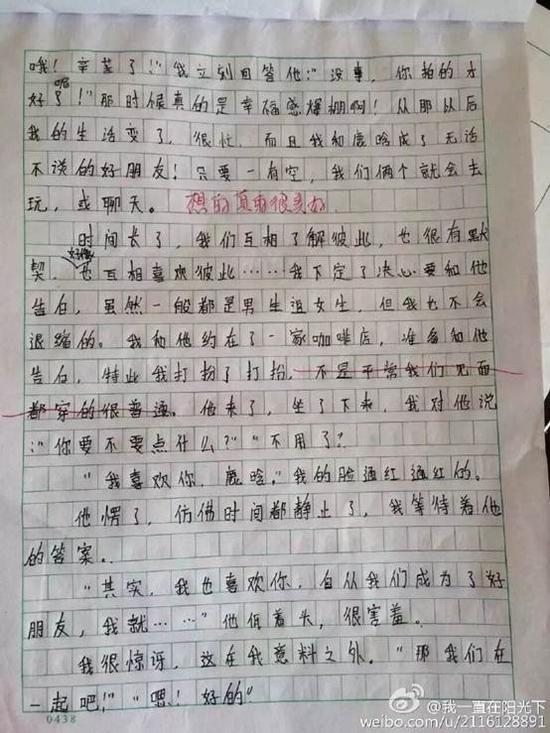 哦！辛苦了！”我立刻回答他：“没事，你拍的才
呢
好了！”那时候真的是幸福感爆棚啊！从那以后
我的生活变了，很忙，而且我和鹿晗成了无话
不说的好朋友！只要一有空，我们俩个就会去
玩，或聊天。 想的真有很美好
时间长了，我们互相了解彼此，也很有默
好像
契，也互相喜欢彼此……我下定了决心要和他
告白，虽然一般都是男生追女生，但我也不会
退缩的。我和他约在了一家咖啡店，准备和他
告白，特此我打扮了打扮，不是平常我们见面
都穿的很普通。他来了，坐了下来，我对他说
：“你要不要点什么？”“不用了？
“我喜欢你，鹿晗。”我的脸通红通红的。
他愣了，仿佛时间都静止了，我等待着他
的答案。
“其实，我也喜欢你，自从我们成为了好
朋友，我就……”他低着头，很害羞。
我很惊讶，这在我意料之外。“那我们在
一起吧！”“嗯！好的”
0438
@我一直在阳光下
weibo.com/u/2116128891